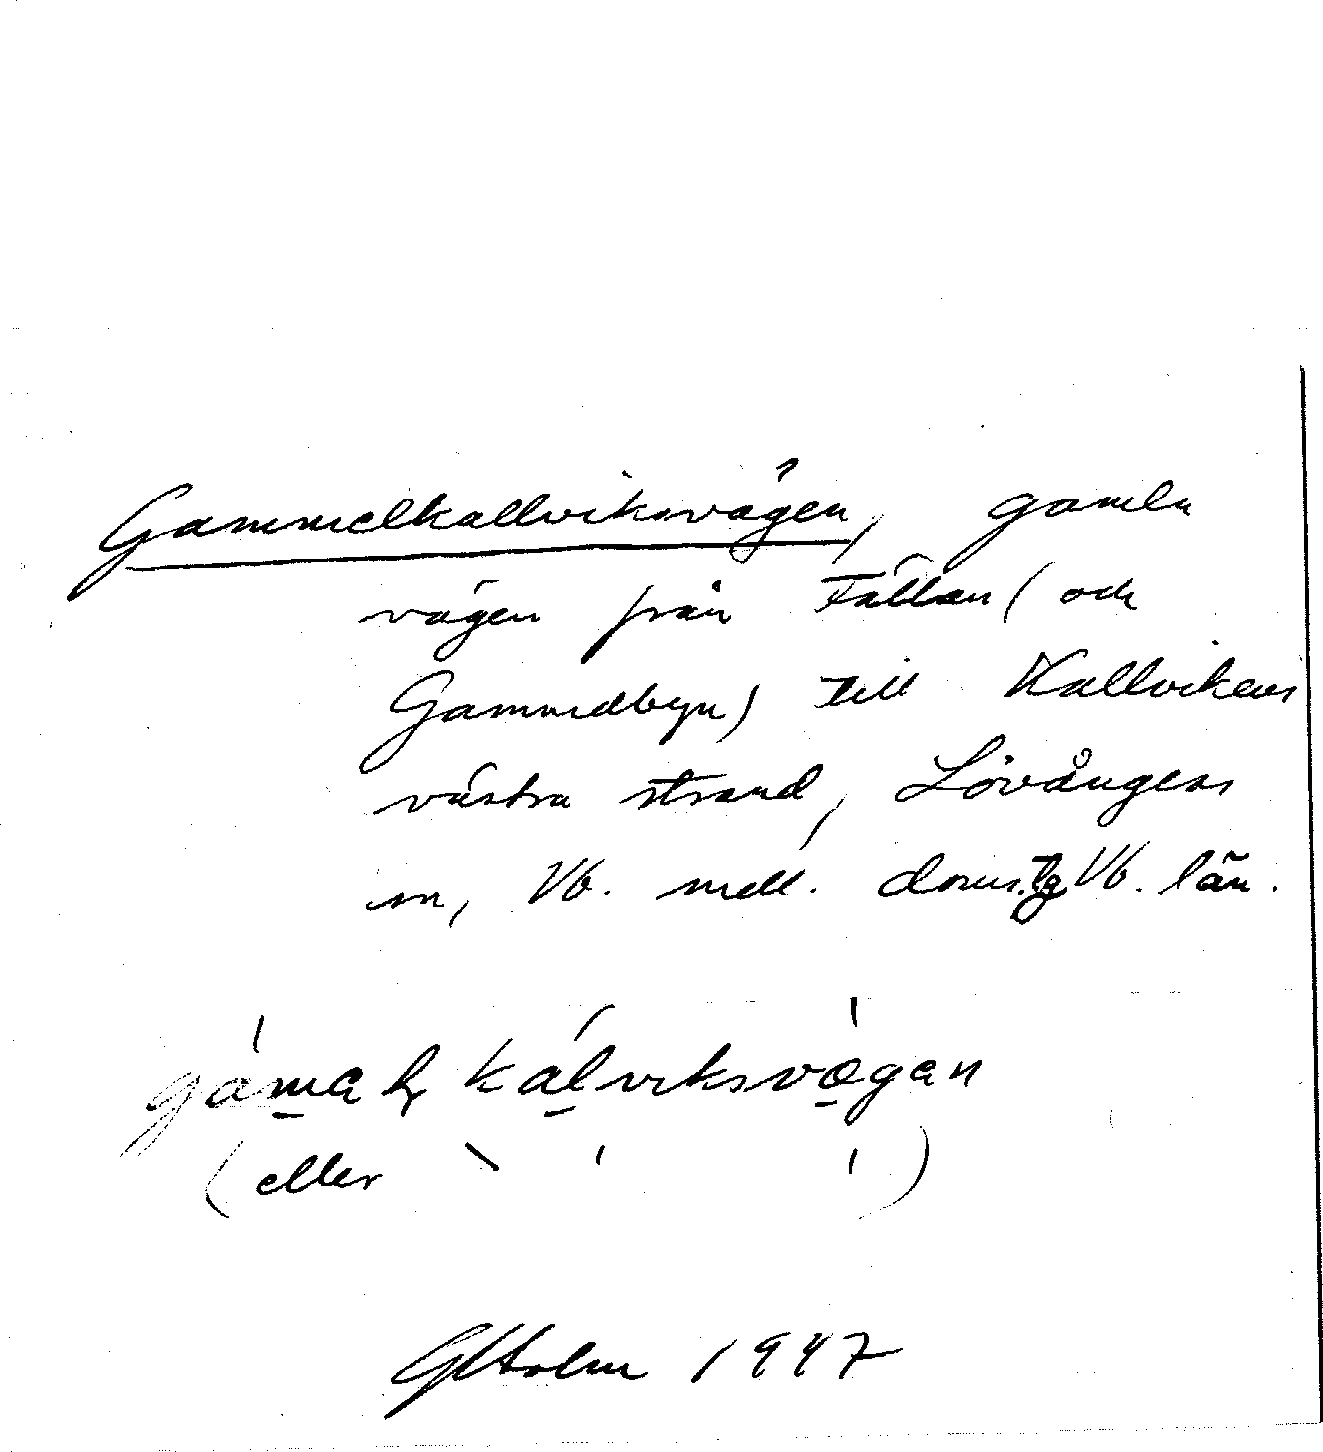 Gammelkallviksvägen, gamla
vägen från Fällan (och
Gammelbyn) till Kallvikens
västra strand, Lövångers
sn, Vb. mell. doms. Vb. län.
kálviksvægan
(eller ` ' ')
Holm 1947